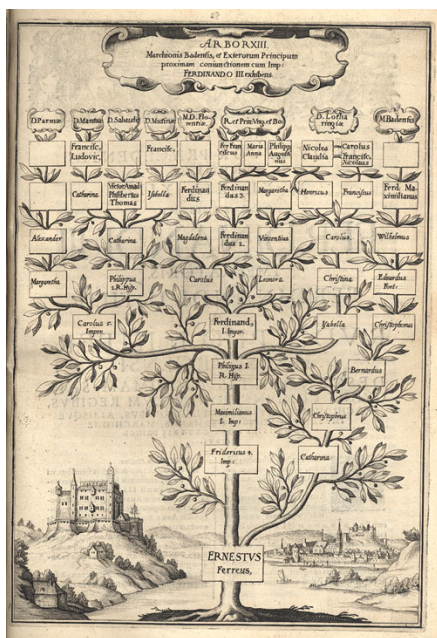 ARBOR XIII.
Marchionis Badensis, et Exterorum Principum
proximam coniunctionem cum Imp:
FERDINANDO III. exhibens.
D. Parmæ
D. Mantuæ
D. Sabaudiæ
D. Mutinæ
M.D. Flo-
rentiæ
R. et Prin. Vng. et Bo.
D. Lotha
ringiæ
M. Badensis
Francisc,
Ludovic,
Francisc,
Fer Fran
ciscus
Maria
Anna
Philipp
Augusti
nus
Nicolea
Claudia
Carolus
Francisc,
Nicolaus
Catharina
Victor Amad
Philibertus
Thomas
Isabella
Ferdinan
dus
Ferdinan
dus 3.
Margaretha
Henricus
Franciscus
Ferd: Ma-
ximilianus
Alexander
Catharina
Magdalena
Ferdinan
dus 2.
Vincentius
Carolus
Wilhelmus
Margaretha
Philippus
2. R. Hisp.
Carolus
Leonora
Christina
Eduardus
Fort.
Carolus 5.
Imper.
Ferdinand,
I. Imper.
Ysabella
Christophorus
Philippus I.
R. Hisp.
Bernardus
Maximilianus
I. Imp:
Christophorus
Fridericus 4.
Imp:
Catharina
ERNESTVS
Ferreus,